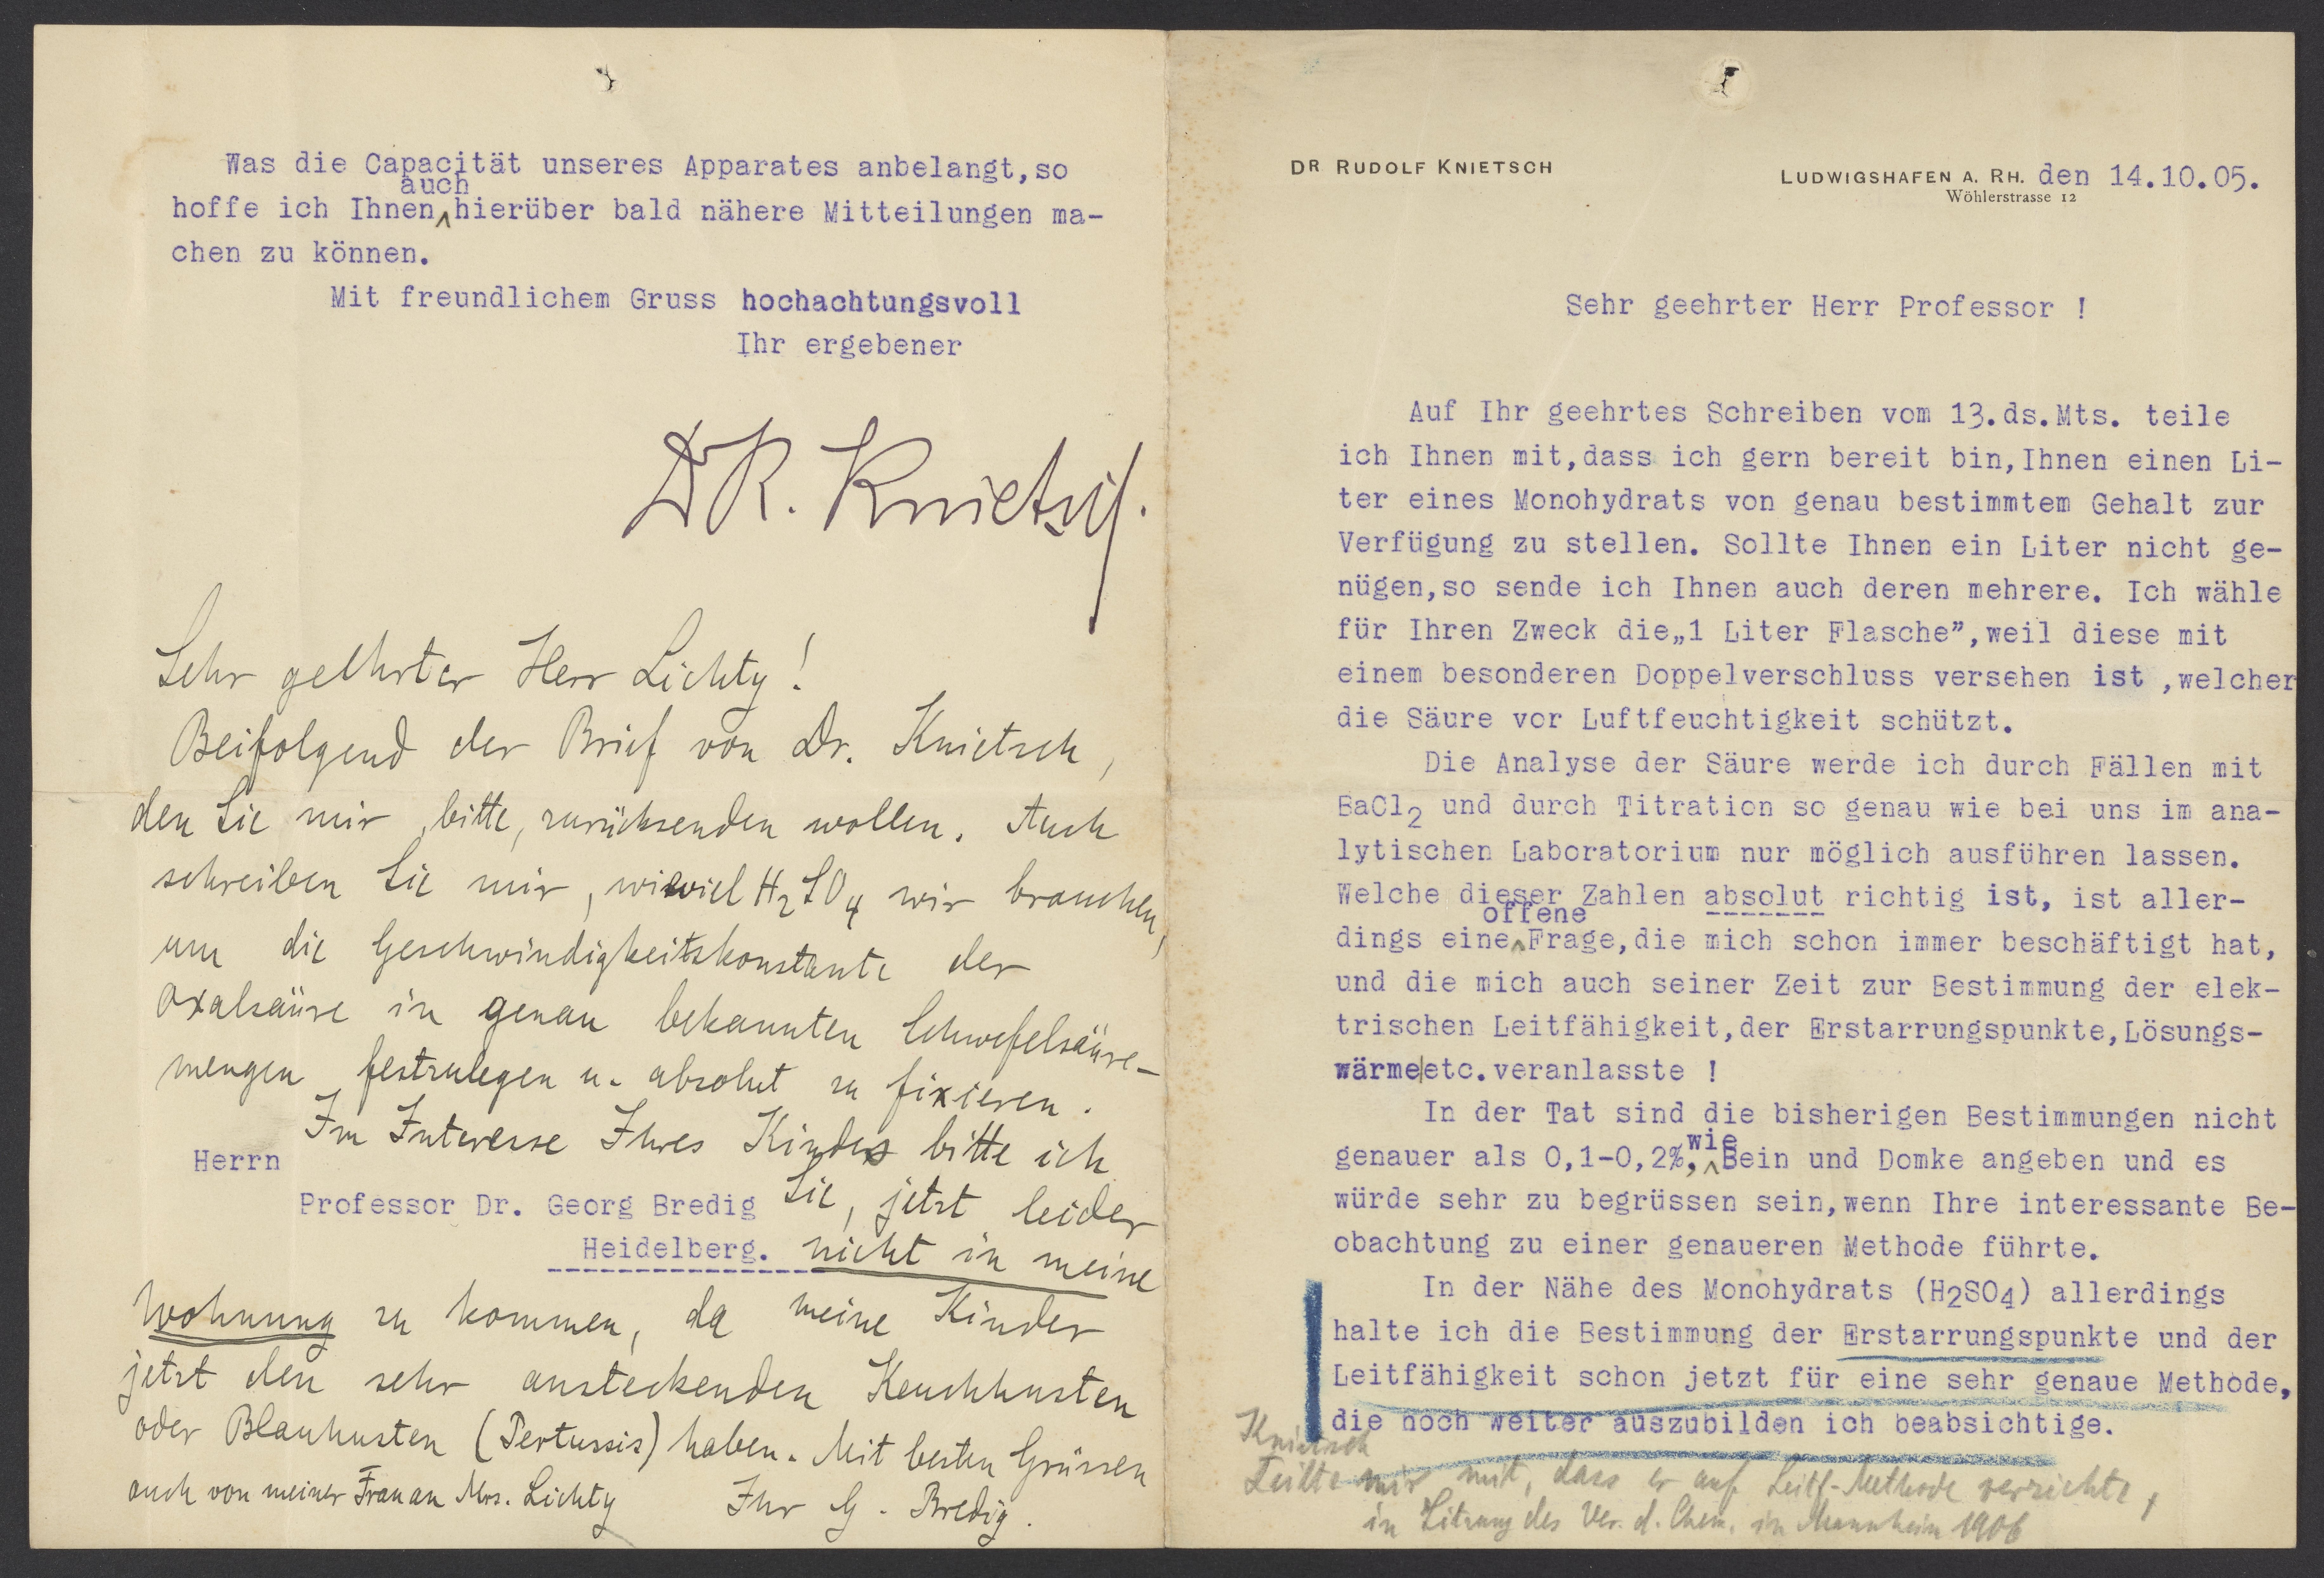 DR RUDOLF KNIETSCH
LUDWIGSHAFEN A. RH. den 14.10.05.
Wöhlerstrasse 12
Sehr geehrter Herr Professor !
Auf Ihr geehrtes Schreiben vom 13.ds.Mts. teile
ich Ihnen mit,dass ich gern bereit bin,Ihnen einen Li-
ter eines Monohydrats von genau bestimmtem Gehalt zur
Verfügung zu stellen. Sollte Ihnen ein Liter nicht ge-
nügen,so sende ich Ihnen auch deren mehrere. Ich wähle
für Ihren Zweck die„1 Liter Flasche”,weil diese mit
einem besonderen Doppelverschluss versehen ist ,welcher
die Säure vor Luftfeuchtigkeit schützt.
Die Analyse der Säure werde ich durch Fällen mit
BaCl2 und durch Titration so genau wie bei uns im ana-
lytischen Laboratorium nur möglich ausführen lassen.
Welche dieser Zahlen absolut richtig ist, ist aller-
offene
dings eine^Frage,die mich schon immer beschäftigt hat,
und die mich auch seiner Zeit zur Bestimmung der elek-
trischen Leitfähigkeit,der Erstarrungspunkte,Lösungs-
wärme|etc.veranlasste !
In der Tat sind die bisherigen Bestimmungen nicht
wie
genauer als 0,1-0,2%,^Bein und Domke angeben und es
würde sehr zu begrüssen sein,wenn Ihre interessante Be-
obachtung zu einer genaueren Methode führte.
In der Nähe des Monohydrats (H2SO4) allerdings
halte ich die Bestimmung der Erstarrungspunkte und der
Leitfähigkeit schon jetzt für eine sehr genaue Methode,
die noch weiter auszubilden ich beabsichtige.
Knietsch
Teilte mir mit, dass er auf Leitf-Methode verzichte,
in Sitzung des Ver. d. Chem. in Mannheim 1906
Was die Capacität unseres Apparates anbelangt,so
auch
hoffe ich Ihnen^hierüber bald nähere Mitteilungen ma-
chen zu können.
Mit freundlichem Gruss hochachtungsvoll
Ihr ergebener
Dr R. Knietsch.
Sehr geehrter Herr Lichty!
Beifolgend der Brief von Dr. Knietsch,
den Sie mir, bitte, zurücksenden wollen. Auch
schreiben Sie mir, wieviel H2SO4 wir brauchen,
um die Geschwindigkeitskonstante der
Oxalsäure in genau bekannten Schwefelsäure-
mengen festzulegen u. absolut zu fixieren.
Im Interesse Ihres Kindes bitte ich
Herrn
Professor Dr. Georg Bredig
Heidelberg.
Sie, jetzt leider
nicht in meine
Wohnung zu kommen, da meine Kinder
jetzt den sehr ansteckenden Keuchhusten
oder Blauhusten (Pertussis) haben. Mit besten Grüssen
auch von meiner Frau an Mrs. Lichty Ihr G. Bredig.